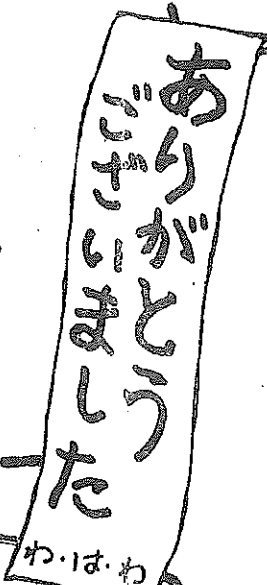 ありがとう
ございました
わ・は・わ